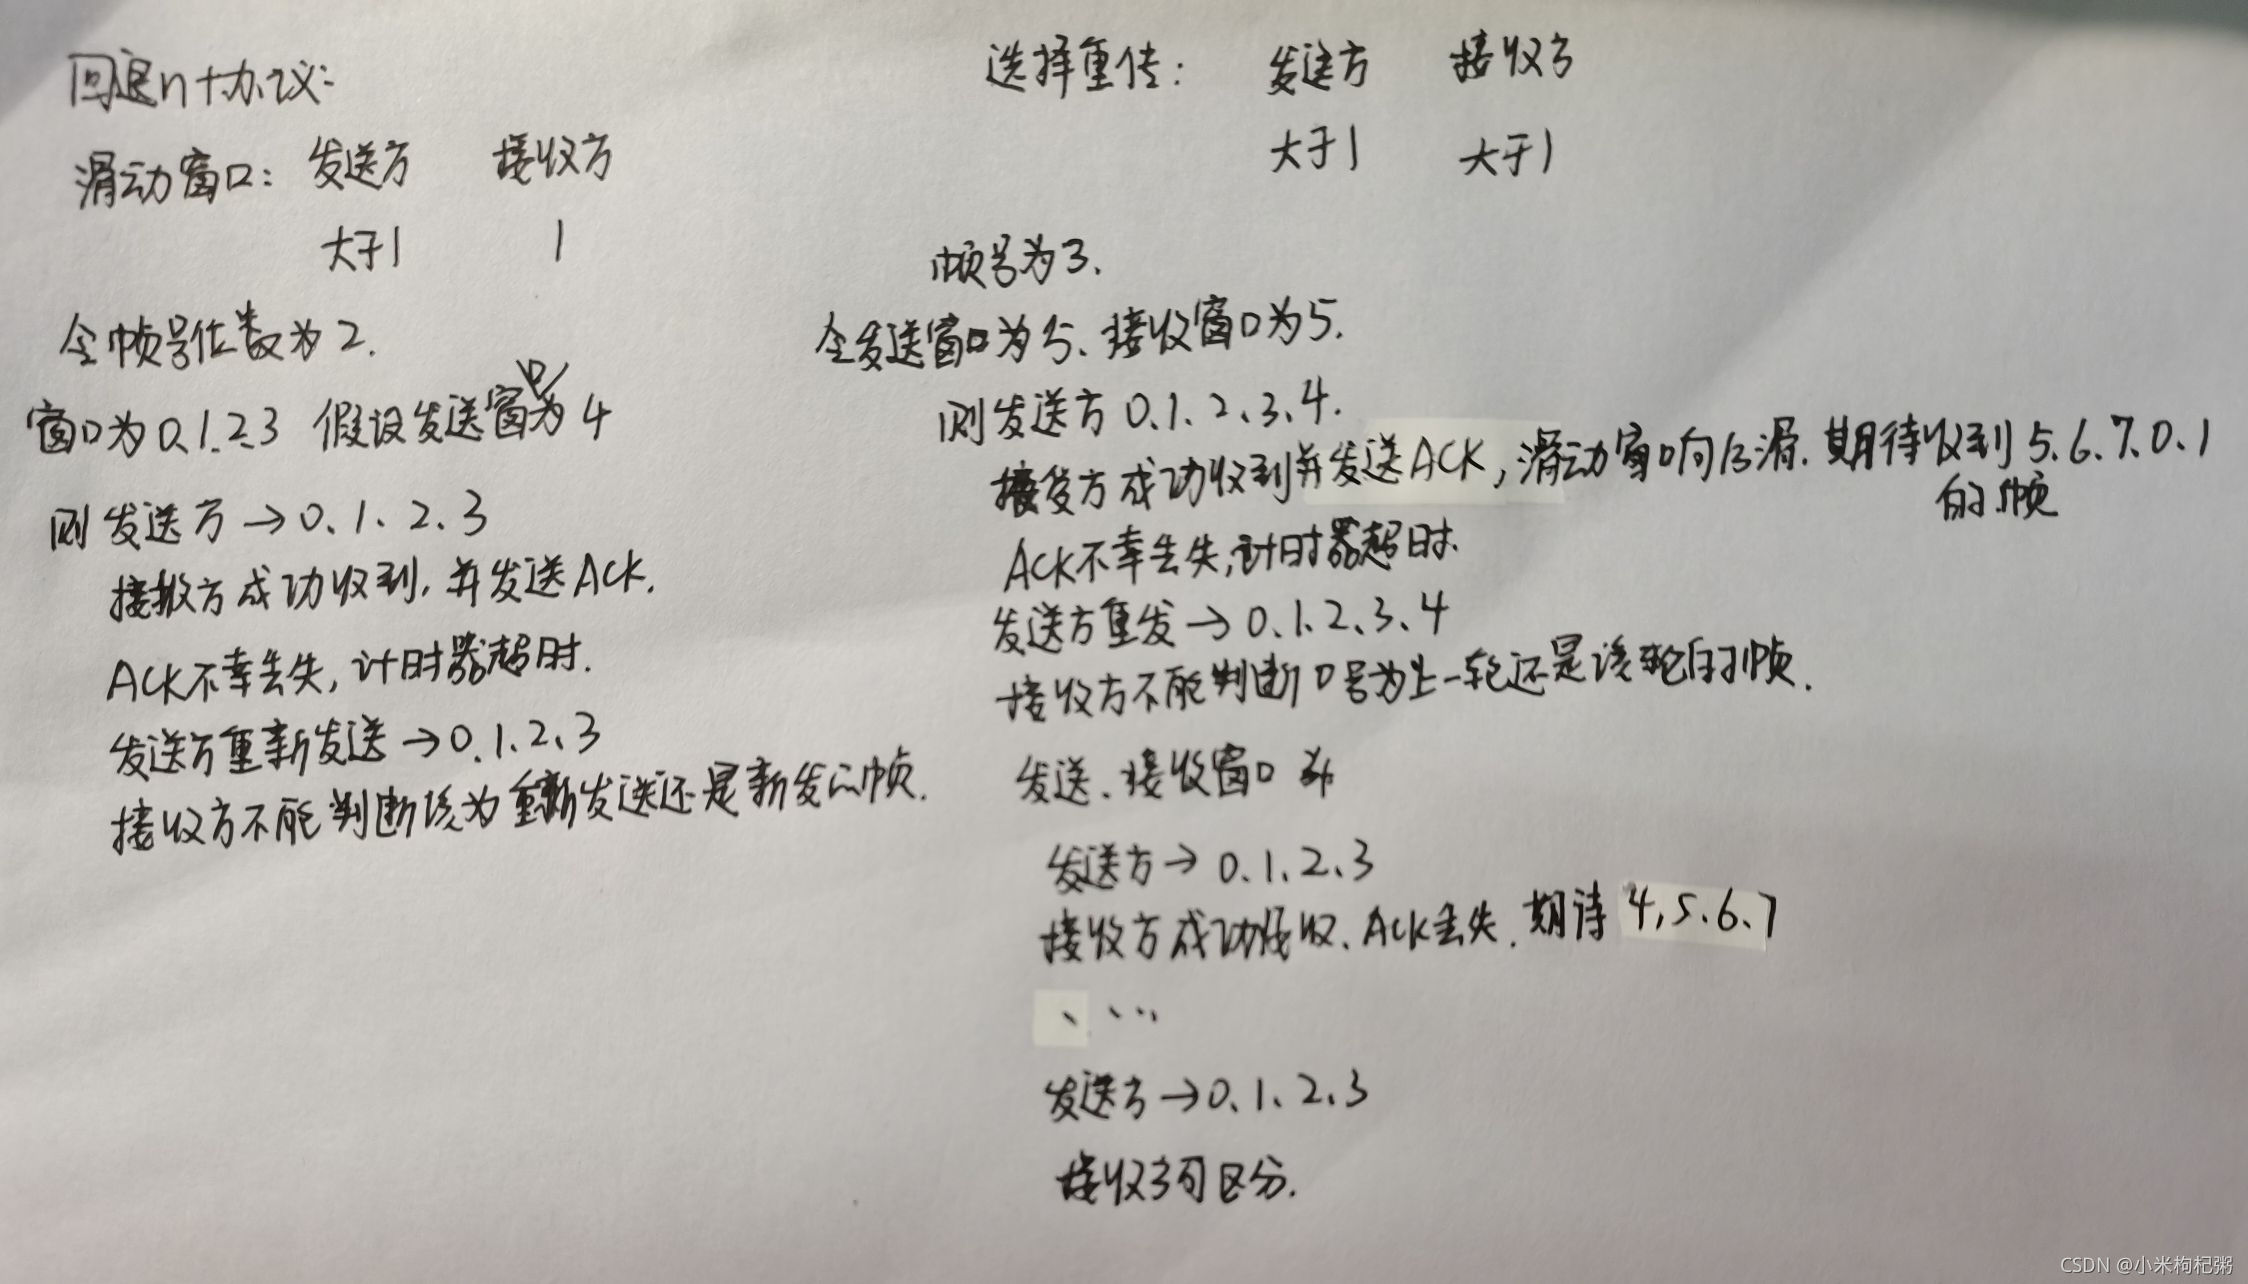 回退n协议:
滑动窗口: 发送方 接收方
大于1 1
令帧号位数为2.
窗口为0.1.2.3 假设发送窗口为4
则发送方→0.1.2.3
接收方成功收到,并发送ACK.
ACK不幸丢失,计时器超时.
发送方重新发送→0.1.2.3
接收方不能判断该为重新发送还是新发的帧.
选择重传: 发送方 接收方
大于1 大于1
帧号为3.
令发送窗口为5、接收窗口为5.
则发送方0.1.2.3.4.
接受方成功收到并发送ACK,滑动窗口向后滑.期待收到5.6.7.0.1
的帧
ACK不幸丢失,计时器超时.
发送方重发→0.1.2.3.4
接收方不能判断0号为上一轮还是该轮的帧.
发送、接收窗口为4
发送方→0.1.2.3
接收方成功接收、ACK丢失.期待4,5.6.7
、、...
发送方→0.1.2.3
接收方可区分.
CSDN @小米枸杞粥